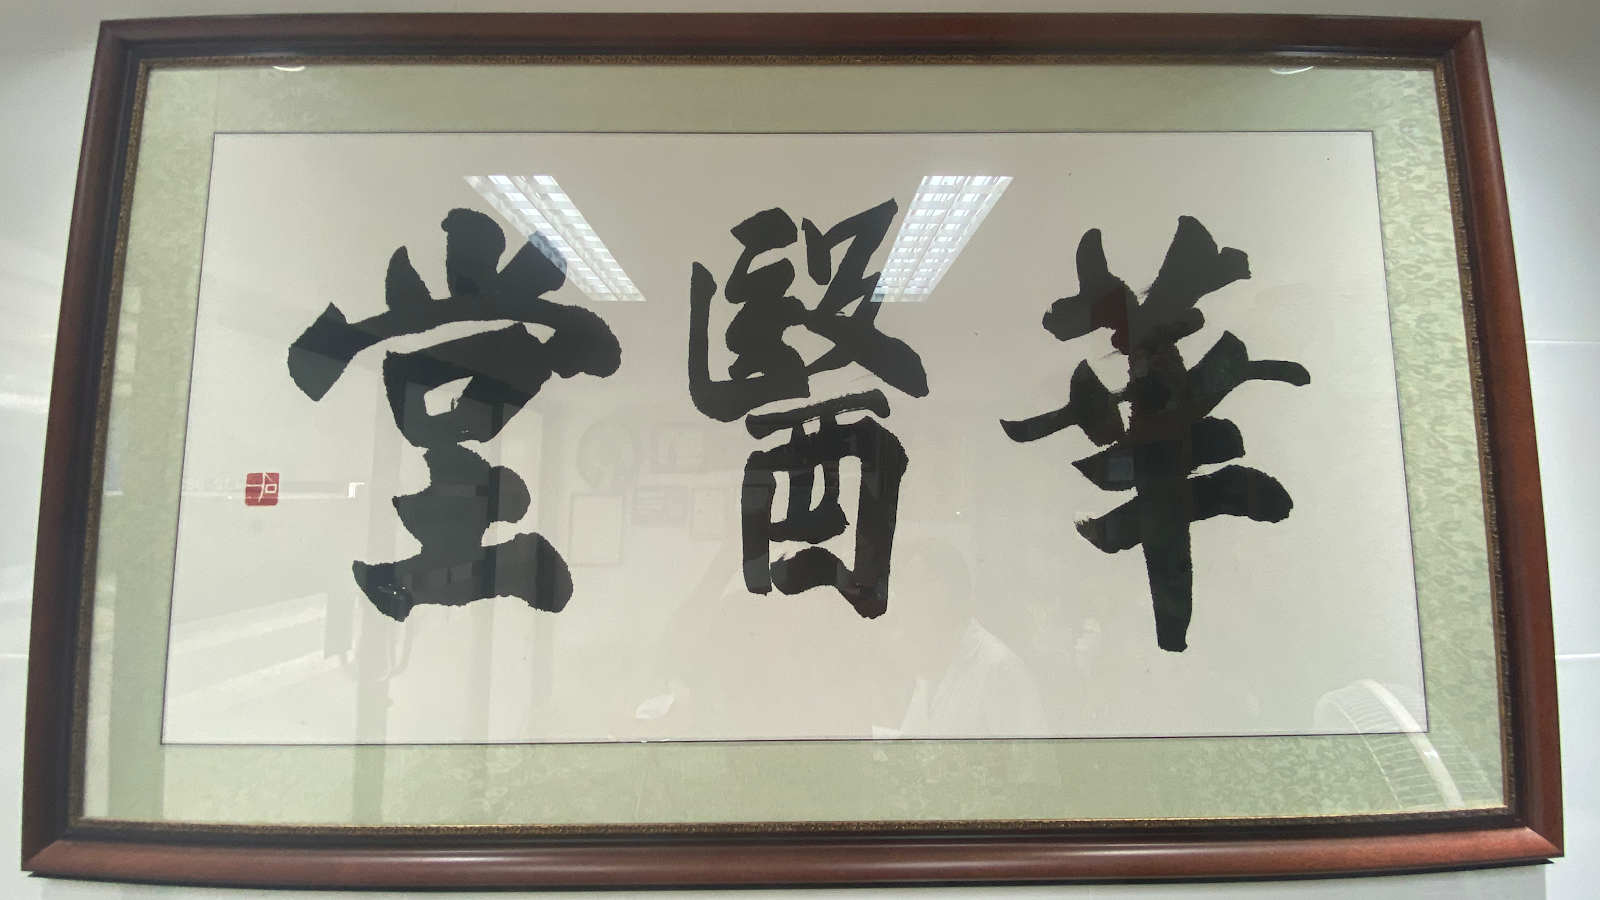 華醫堂